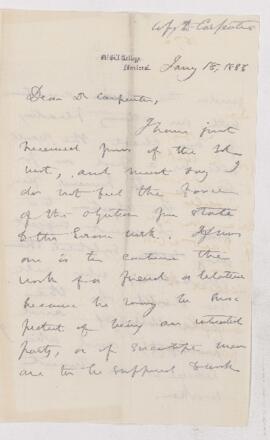 Copy Dr Carpenter
McGill College
Montreal
Jany 18, 1888
Dear Dr Carpenter,
I have just
received yours of the 3d
inst, and must say I
do not feel the force
of the objection you state
to the work. If
one is to continue the
work of a friend or relative
because he may be sus
pected of being an interested
party, or if scientific men
are to be supposed